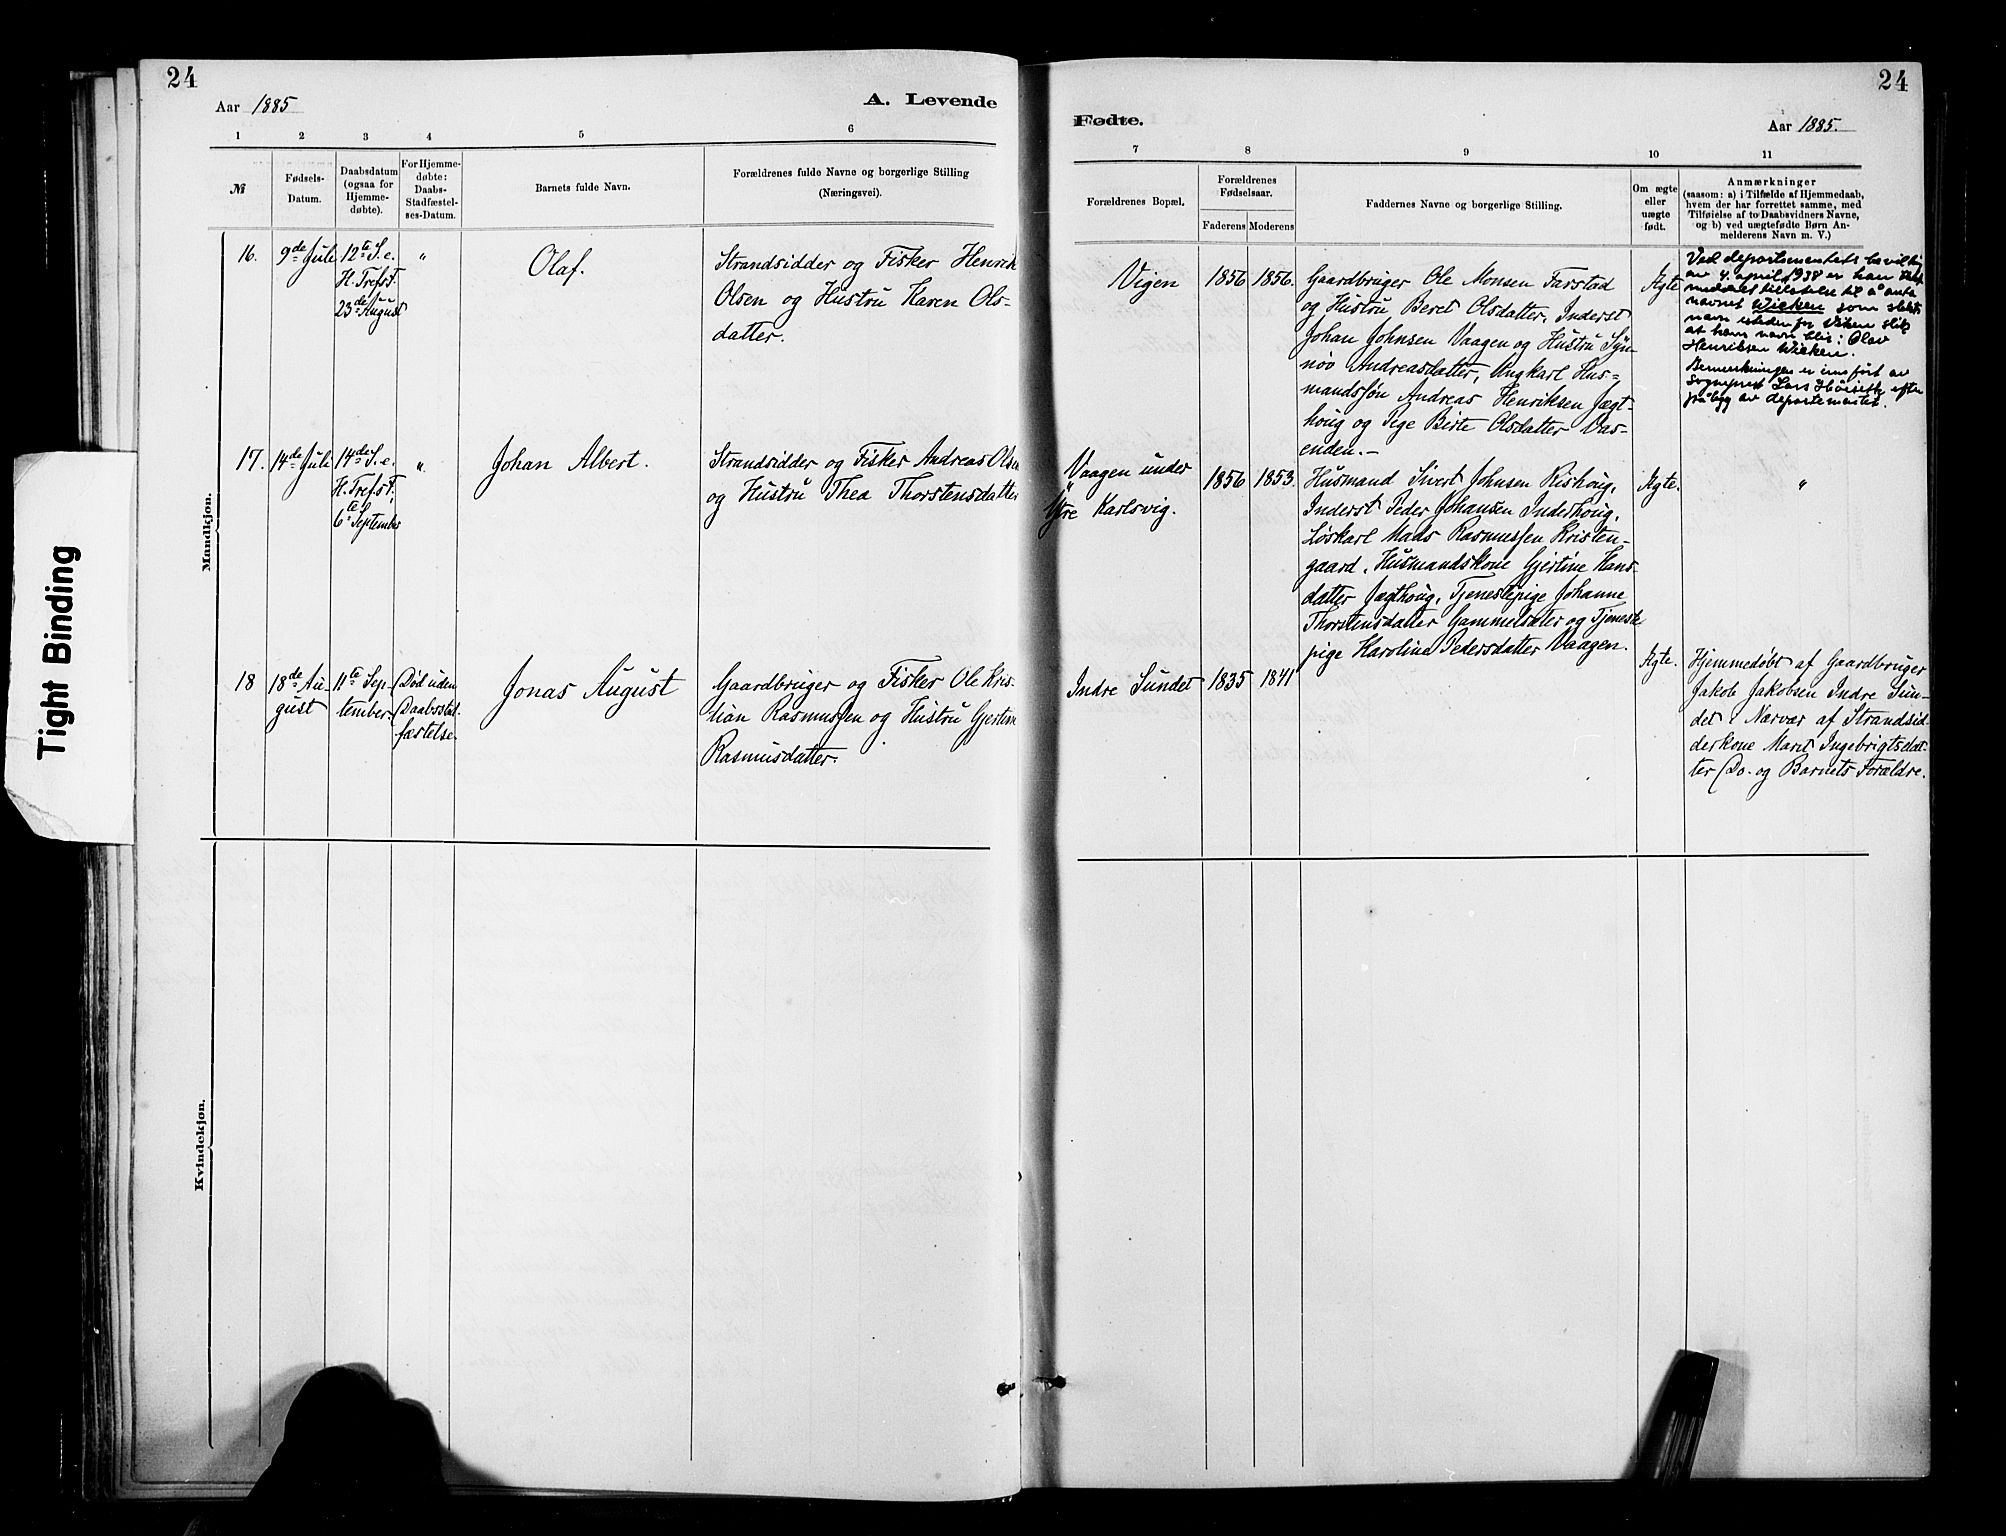 24
Aar 1885
A. Levende
1 2 3 4 5 6
№
Fødsels-
Datum.
Daabsdatum
(ogsaa for
Hjemme-
døbte).
For Hjemme-
døbte:
Daabs-
Stadfæstel-
ses-Datum.
Barnets fulde Navn.
Forældrenes fulde Navne og borgerlige Stilling
(Næringsvei).
Mandkjøn.
16.
9de Juli
12te S. e.
H. Tref. F.
23de August
"
Olaf.
Strandsidder og Fisker Henrik
Olsen og Hustru Karen Ols-
datter.
17.
14de Juli
14de S. e.
H. Tref. s F.
6te September
"
Johan Albert.
Strandsidder og Fisker Andreas Olsen
og Hustru Thea Thorstensdatter
18
18de Au-
gust
11te Sep-
tember.
Død uden
Daabsstad-
fæstelse.
Jonas August
Gaardbruger og Fisker Ole Kris-
tian Rasmussen og Hustru Gjertine
Rasmusdatter.
Kvindekjøn.
Tight Binding
24
Fødte.
Aar 1885.
7 8 9 10 11
Forældrenes Bopæl.
Forældrenes
Fødselsaar.
Faderens Moderens
Faddernes Navne og borgerlige Stilling.
Om ægte
eller
uægte
født.
Anmærkninger
(saasom: a) i Tilfælde af Hjemmedaab,
hvem der har forrettet samme, med
Tilføielse af to Daabsvidners Navne,
og b) ved uægtefødte Børn An-
melderens Navn m. V.)
Vigen
1856
1856.
Gaardbruger Ole Monsen Farstad
og Hustru Beret Olsdatter, Inderst
Johan Johnsen Vaagen og Hustru Syn-
nøv Andreasdatter, Ungkarl Hus-
mandssøn Andreas Henriksen Jægt-
houg og Pige Birte Olsdatter Vas-
enden. -
Ægte
Ved departementets bevilling
av 4. april 1938 er han
meddelt tillatelse til å anta
navnet Wicken som slekts
navn isteden for Viken slik
at hans navn blir: Olav
Henriksen Wicken.
Bemerkningen er innført av
sogneprest Lars Höiseth efter
pålegg av departementet.
Vaagen under
Ytre Karlsvig.
1856
1853.
Husmand Sivert Johnsen Rishoug,
Inderst Peder Johansen Inderhoug,
Løskarl Mads Rasmussen Kristen-
gaard, Husmandskone Gjertine Hans-
datter Jægthoug, Tjenestepige Johanne
Thorstensdatter Gammelsæter og Tjeneste
pige Karoline Pedersdatter Vaagen.
Ægte.
"
Indre Sundet
1835
1841
Ægte.
Hjemmedøbt af Gaardbruger
Jakob Jakobsen Indre Sun-
det i Nærvær af Strandsid-
derkone Marit Ingebrigtsdat-
ter Do. og Barnets Forældre.